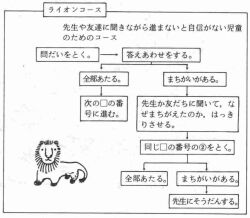 ライオンコース
先生や友達に聞きながら進まないと自信がない児童
のためのコース
問だいをとく。
答えあわせをする。
全部あたる。
まちがいがある。
次の□の番
号に進む。
先生か友だちに聞いて，な
ぜまちがえたのか，はっき
りさせる。
同じ□の番号の②をとく。
全部あたる。
まちがいがある。
先生にそうだんする。